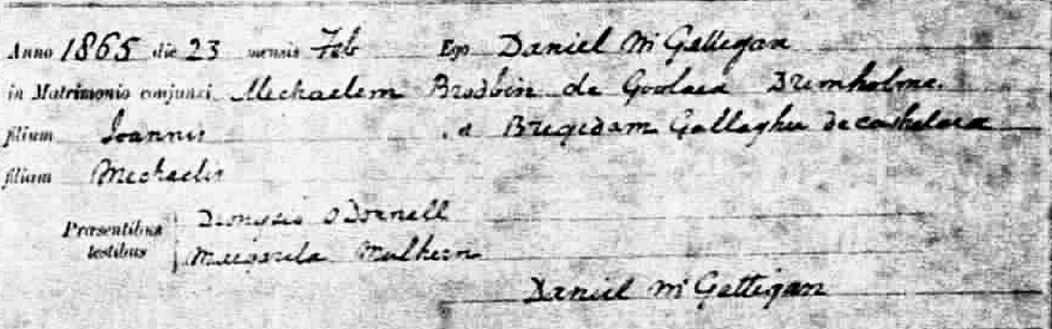 Anno 1865 die 23 mensis Feb Ego Daniel McGettigan
in Matrimonio conjunxi Mechaelem Brodbin de Goolaea Drumholme.
filium Joannis et Bregedam Gallagher de cashelard
filiam Mechaelis
Præsentibus testibus Dionysio O Donnell
Margarita Mulhern
Daniel McGettigan